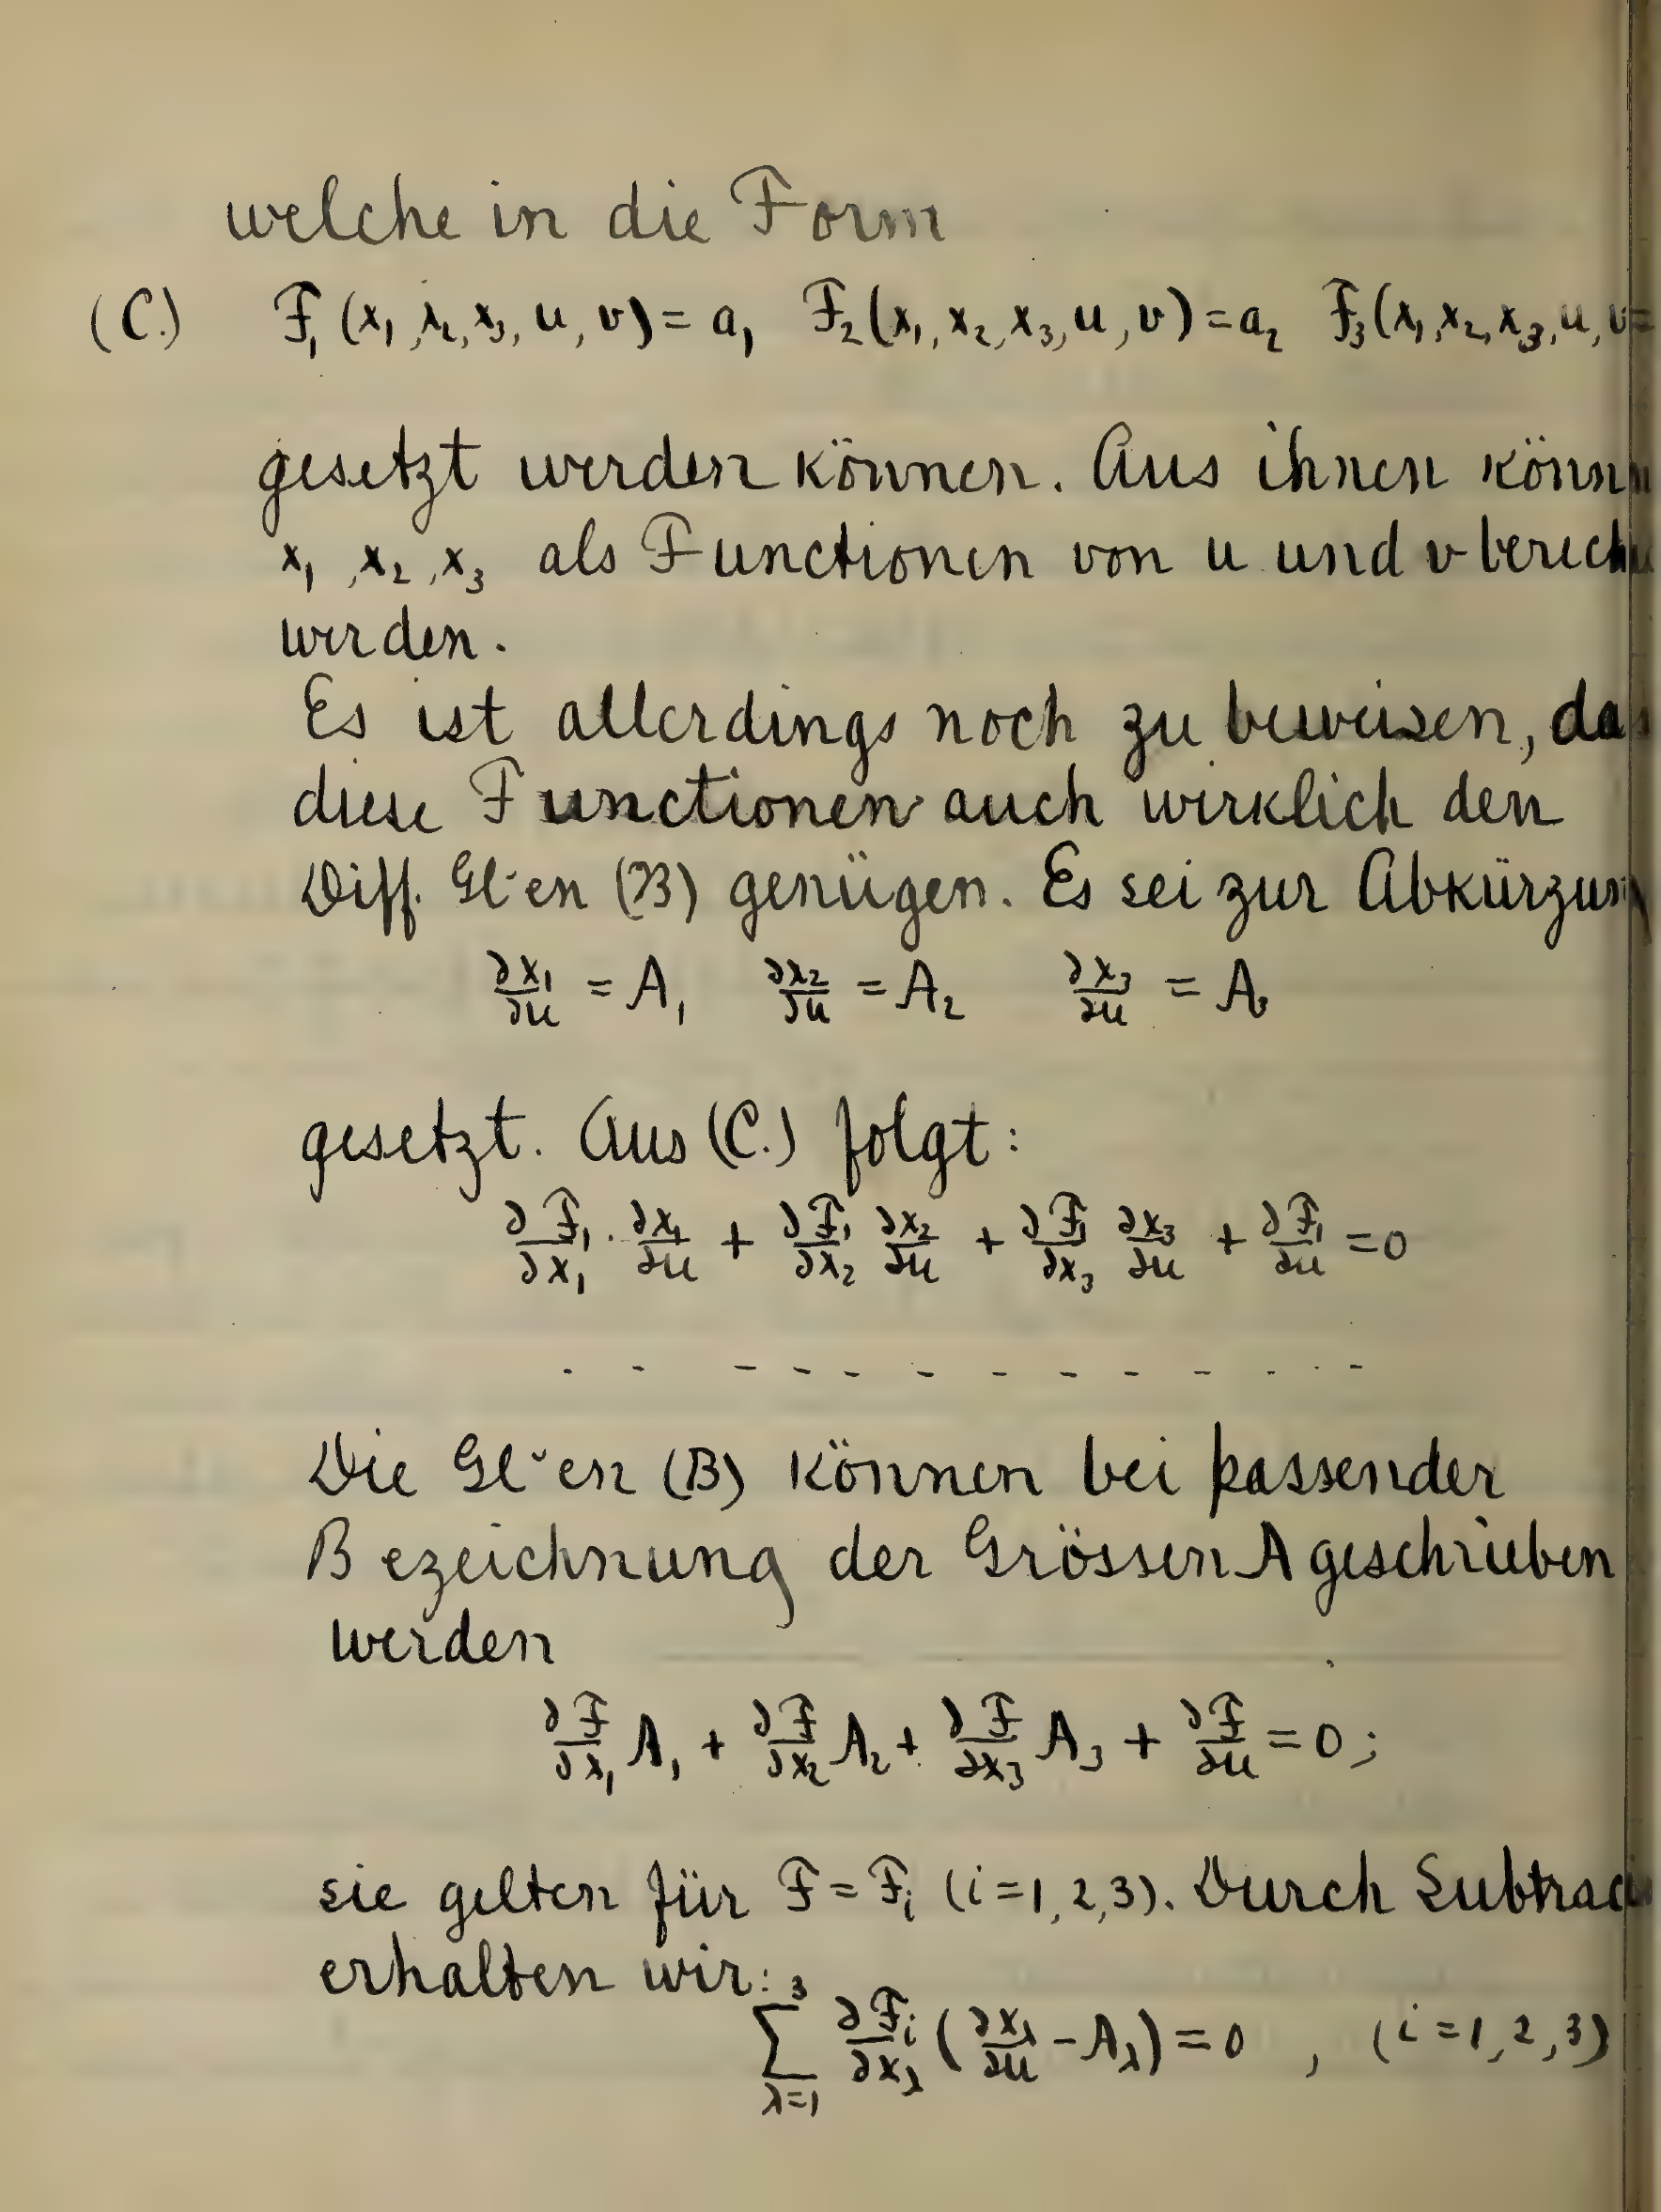 welche in die Form
(C.) F₁(x₁, x₂, x₃, u, v) = a₁ F₂(x₁, x₂, x₃, u, v) = a₂ F₃(x₁, x₂, x₃, u, v =
gesetzt werden können. Aus ihnen könn
x₁, x₂, x₃ als Functionen von u und v berech
werden.
Es ist allerdings noch zu beweisen, das
diese Functionen auch wirklich den
Diff. Gl-en (B) genügen. Es sei zur Abkürzung
∂x₁/∂u = A₁ ∂x₂/∂u = A₂ ∂x₃/∂u = A₃
gesetzt. Aus (C.) folgt:
∂F₁/∂x₁ · ∂x₁/∂u + ∂F₁/∂x₂ ∂x₂/∂u + ∂F₁/∂x₃ ∂x₃/∂u + ∂F₁/∂u = 0
. - - - - - - - - - . - -
Die Gl-en (B) können bei passender
Bezeichnung der Grössen A geschrieben
werden
∂F/∂x₁ A₁ + ∂F/∂x₂ A₂ + ∂F/∂x₃ A₃ + ∂F/∂u = 0;
sie gelten für F = Fᵢ (i = 1, 2, 3). Durch Subtrac
erhalten wir:
∑_{λ=1}^{3} ∂Fᵢ/∂x_λ (∂x_λ/∂u - A_λ) = 0 , (i = 1, 2, 3)